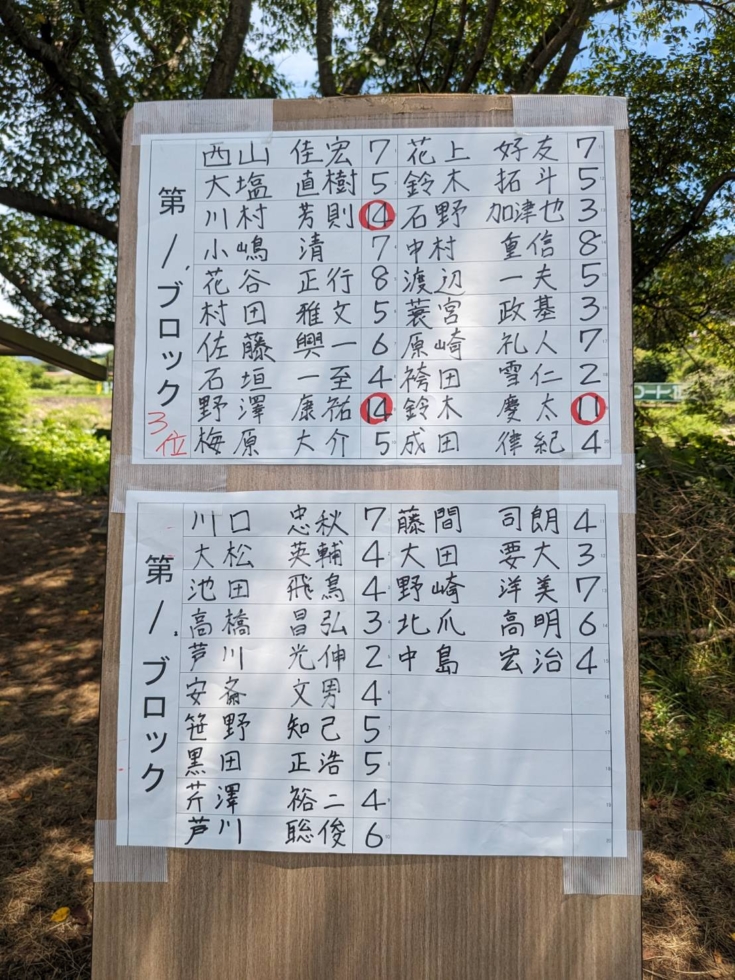 第1ブロック
3位
西山 佳宏 7
大塩 直樹 5
川村 芳則 14
小嶋 清 7
花谷 正行 8
村田 雅文 5
佐藤 興一 6
石垣 一至 4
野澤 康祐 14
梅原 大介 5
花上 好友 7
鈴木 拓斗 5
石野 加津也 3
中村 重信 8
渡辺 一夫 5
蓑宮 政基 3
原崎 礼人 7
袴田 雪仁 2
鈴木 慶太 11
成田 律紀 4
第1ブロック
川口 忠秋 7
大松 英輔 4
池田 飛鳥 4
高橋 昌弘 3
芦川 光伸 2
安斎 文男 4
笹野 知己 5
黒田 正浩 5
芹澤 裕二 4
芦川 聡俊 6
藤間 司朗 4
大田 要大 3
野崎 洋美 7
北爪 高明 6
中島 宏治 4